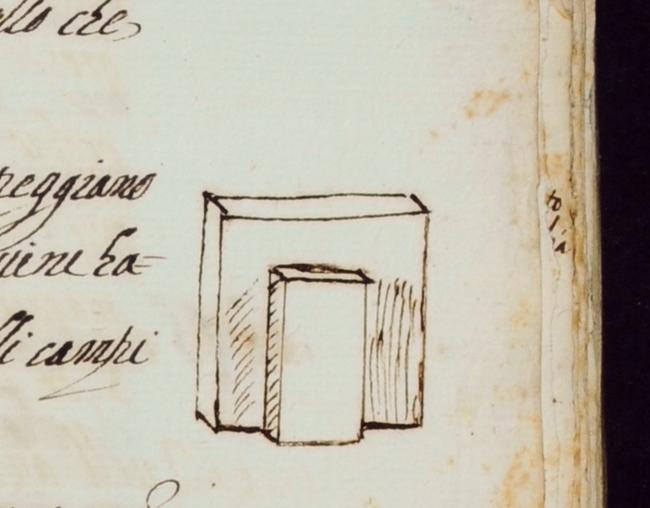 che
reggiano
uine ha=
li campi